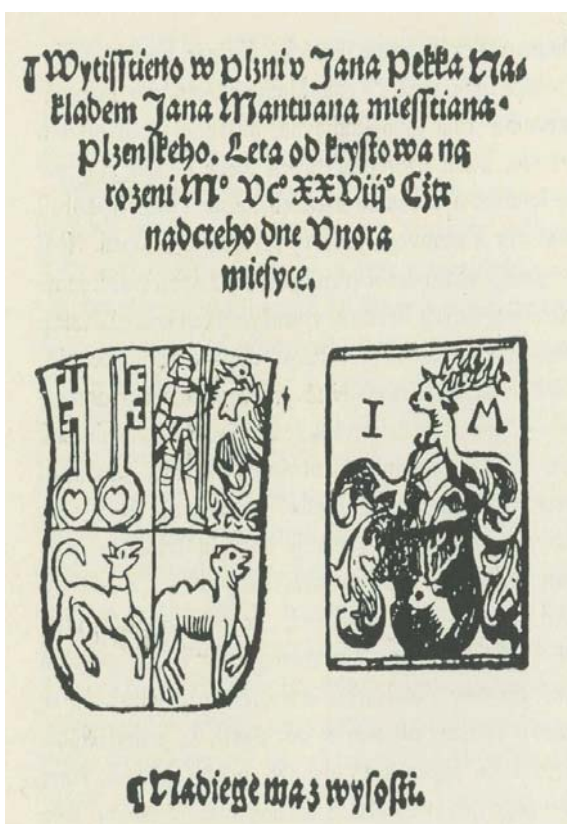 ¶ Wytisstieno w Plzni v Jana Pekka Na⸗
kladem Jana Mantuana miesstiana⸗
Plzenskeho. Leta od krystowa na
rozeni M° Vc° XXViij° Cžtr
nadcteho dne Vnora
miesyce.
I M
¶ Nadiege ma z wysosti.